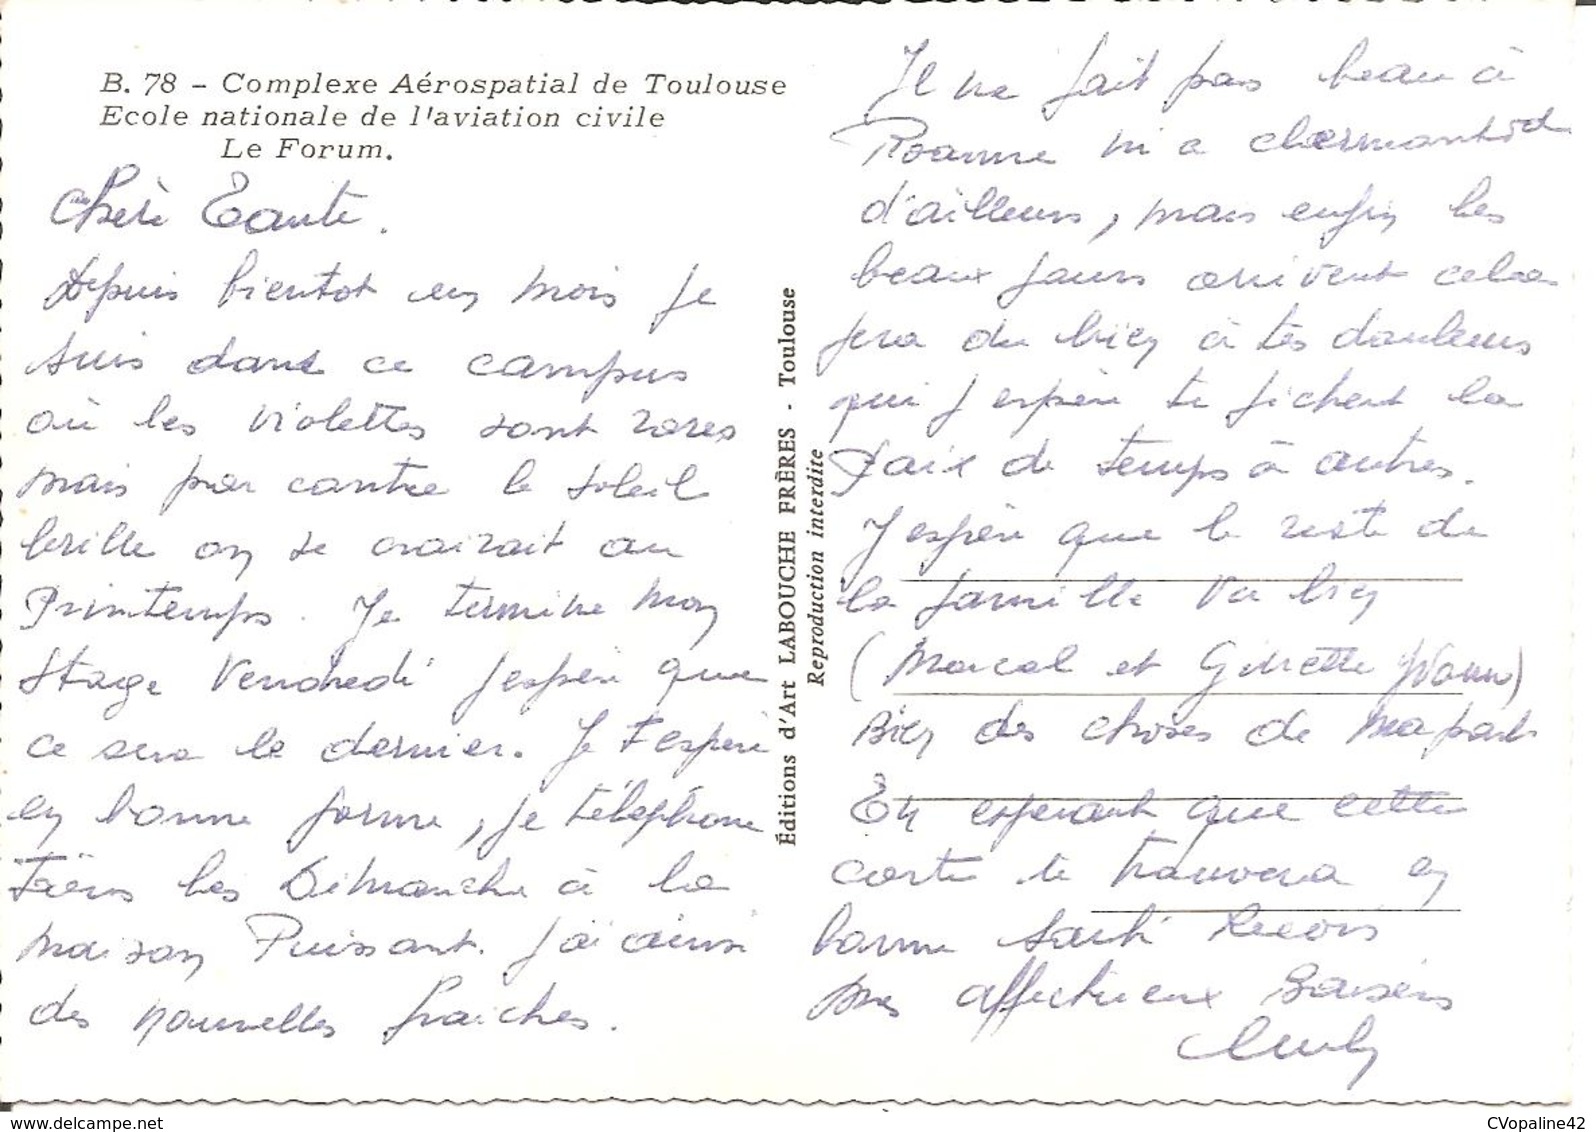 B. 78 – Complexe Aérospatial de Toulouse
Ecole nationale de l'aviation civile
Le Forum.
Chère Tante.
Depuis bientot un mois je
suis dans ce campus
où les violettes sont rares
mais par contre le soleil
brille on se croirait au
Printemps. Je termine mon
stage Vendredi j'espère que
ce sera le dernier. Je t'espère
en bonne forme, je téléphone
tous les Dimanche à la
maison Puissant. J'ai ainsi
des nouvelles fraiches.
Éditions d'Art LABOUCHE FRÈRES . Toulouse
Reproduction interdite
Il ne fait pas beau à
Roanne ni a
d'ailleurs, mais enfin les
beaux jours arrivent cela
fera du bien à tes douleurs
qui j'espère te fichent la
paix de temps à autres.
J'espère que le reste de
la famille va bien
(Marcel et Ginette Yvonne)
Bien des choses de ma part
En esperant que cette
carte te trouvera en
bonne santé Recois
mes affectueux Baisers
CVopaline42